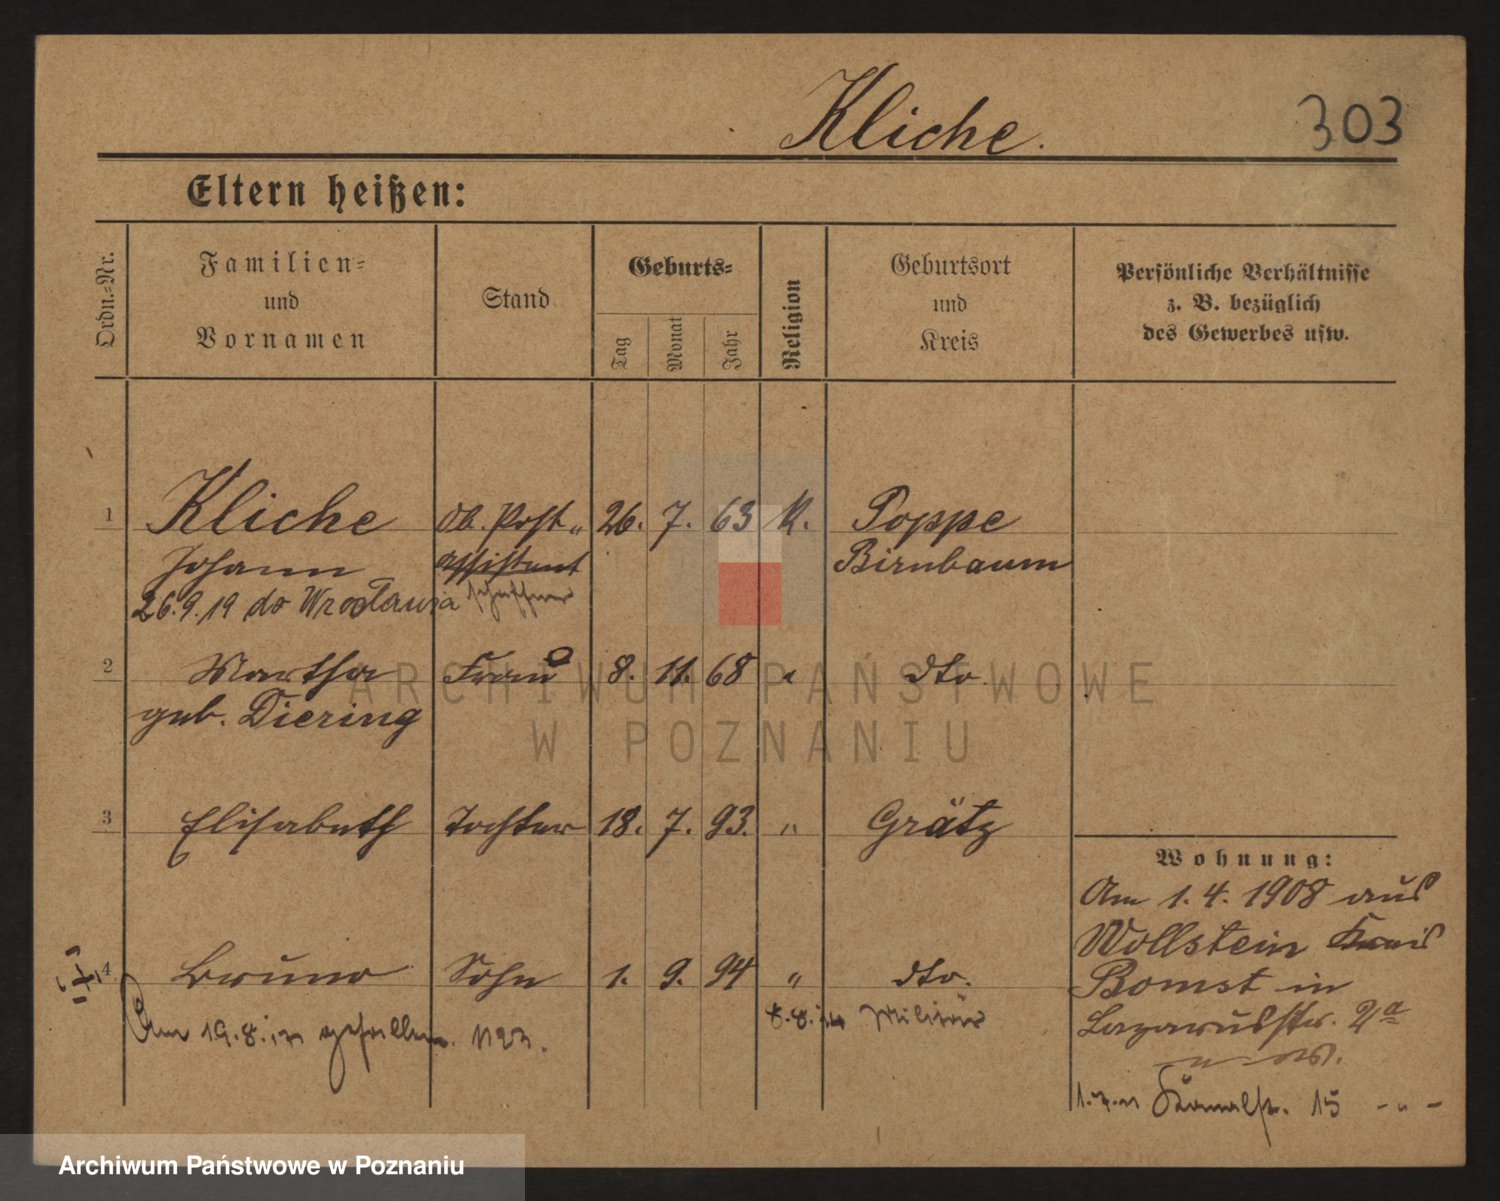 Kliche.
303
Eltern heißen:
Ordn.-Nr.
Familien-
und
Vornamen
Stand
Geburts-
Tag
Monat
Jahr
Religion
Geburtsort
und
Kreis
Persönliche Verhältnisse
z. B. bezüglich
des Gewerbes usw.
1 Kliche Ob. Post- 26. 7. 63 K. Poppe
Johann assistent Birnbaum
26.9.19 do Wrocławia schaffner
2 Martha Frau 8. 11. 68 " dto.
geb. Diering
3 Elisabeth Tochter 18. 7. 93. " Grätz
4 Bruno Sohn 1. 9. 94 " dto.
8.8.14 Militär
Am 19.8.14 gefallen.
Wohnung:
Am 1. 4. 1908 aus
Wollstein Kreis
Bomst in
Lazarusstr. 2a
Kanalstr. 15 - " -
ARCHIWUM PAŃSTWOWE
W POZNANIU
Archiwum Państwowe w Poznaniu